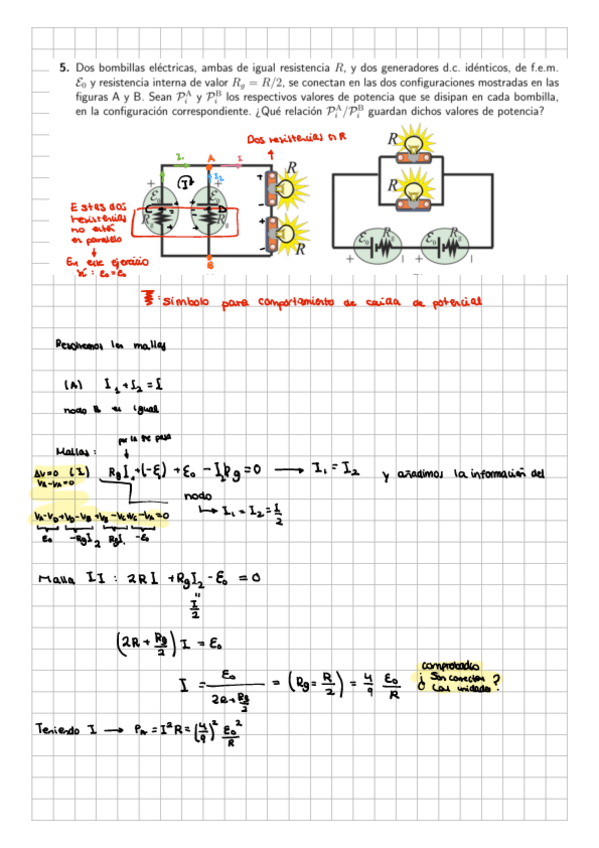 5. Dos bombillas eléctricas, ambas de igual resistencia R, y dos generadores d.c. idénticos, de f.e.m.
ℰ₀ y resistencia interna de valor R_g = R/2, se conectan en las dos configuraciones mostradas en las
figuras A y B. Sean 𝒫ᵢᴬ y 𝒫ᵢᴮ los respectivos valores de potencia que se disipan en cada bombilla,
en la configuración correspondiente. ¿Qué relación 𝒫ᵢᴬ/𝒫ᵢᴮ guardan dichos valores de potencia?
Dos resistencias en R
I₁ A I
I₂
R
R
R
R
Estas dos
resistencias
no están
en paralelo
En este ejercicio
ε₀ = ε₀
B
: símbolo para comportamiento de caída de potencial
Resolvemos las mallas
(A) I₁ + I₂ = I
nodo B es igual
Mallas:
ΔV=0 (I) R_g I₁ + (-ε₀) + ε₀ - I₂R_g = 0 → I₁ = I₂ y añadimos la información del
V_A-V_A=0
nodo
↳ I₁ = I₂ = I/2
ε₀ -R_g I₂ R_g I₁ -ε₀
Malla II: 2RI + R_g I₂ - ε₀ = 0
I/2
(2R + R_g/2) I = ε₀
I = ε₀/(2R + R_g/2) = (R_g = R/2) = 4/9 ε₀/R
comprobadlo
¿Son correctas?
las unidades
Teniendo I → P_A = I²R = (4/9)² ε₀²/R